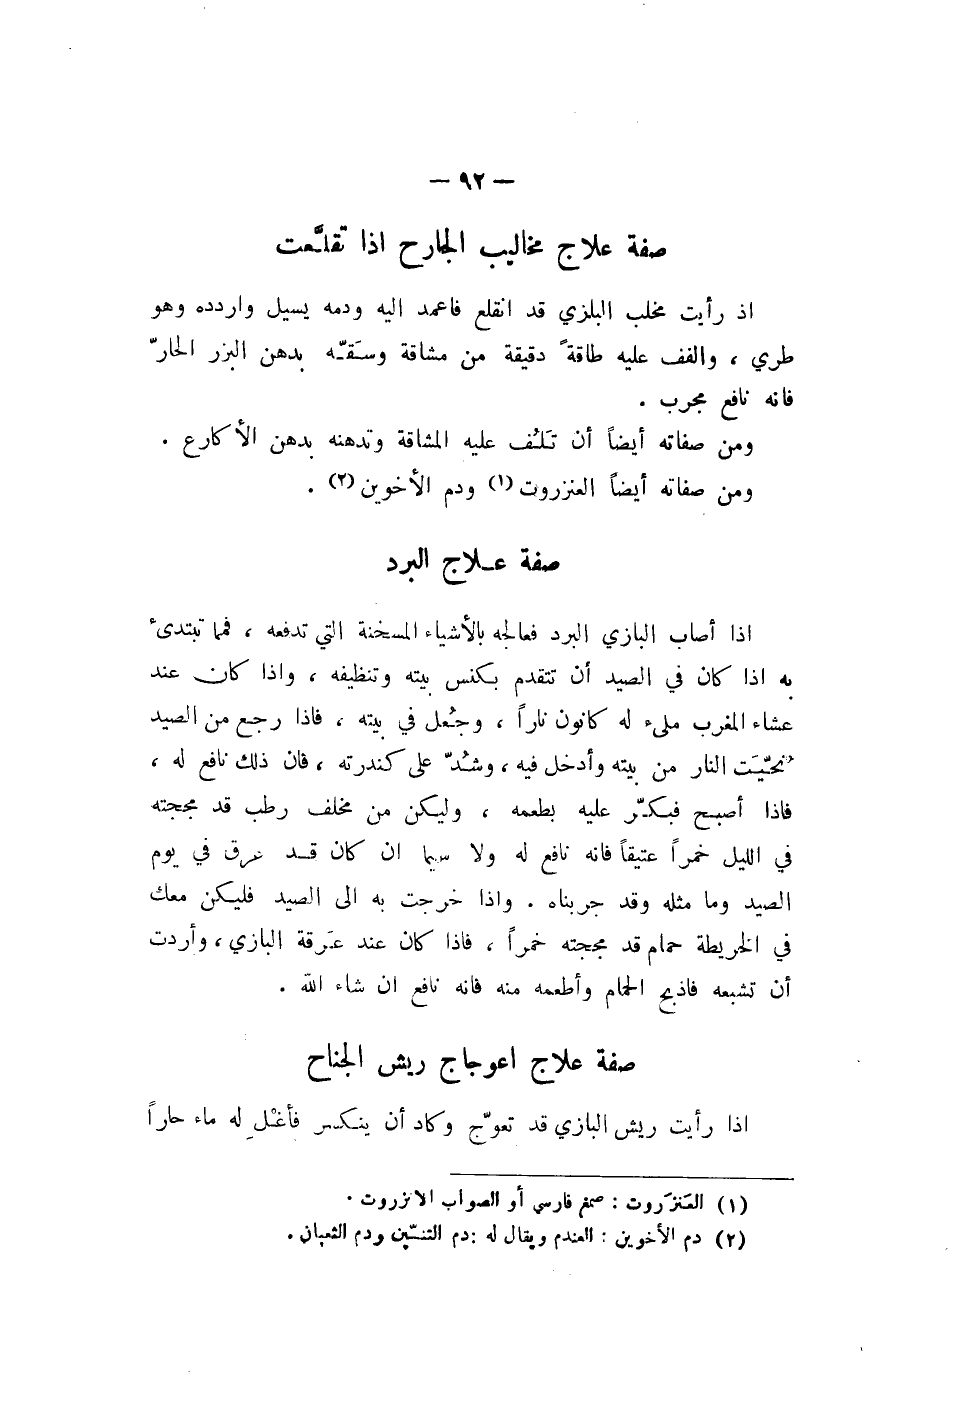 — ٩٢ —
صفة علاج مخاليب الجارح اذا تقلَّعت
اذ رأيت مخلب البلزي قد انقلع فاعمد اليه ودمه يسيل واردده وهو
طري ، والفف عليه طاقةً دقيقة من مشاقة وسَقّه بدهن البزر الحارّ
فانه نافع مجرب .
ومن صفاته أيضاً أن تَلُف عليه المشاقة وتدهنه بدهن الأكارع .
ومن صفاته أيضاً العنزروت (١) ودم الأخوين (٢) .
صفة عـلاج البرد
اذا أصاب البازي البرد فعالجه بالأشياء المسخنة التي تدفعه ، فمما تبتدىء
به اذا كان في الصيد أن تتقدم بكنس بيته وتنظيفه ، واذا كان عند
عشاء المغرب ملىء له كانون ناراً ، وجُعل في بيته ، فاذا رجع من الصيد
نُحّيَت النار من بيته وأدخل فيه ، وشُدّ على كندرته ، فان ذلك نافع له ،
فاذا أصبح فبكّر عليه بطعمه ، وليكن من مخلف رطب قد مججته
في الليل خمراً عتيقاً فانه نافع له ولا سيما ان كان قـد عرق في يوم
الصيد وما مثله وقد جربناه . واذا خرجت به الى الصيد فليكن معك
في الخريطة حمام قد مججته خمراً ، فاذا كان عند عَرقة البازي ، وأردت
أن تشبعه فاذبح الحمام وأطعمه منه فانه نافع ان شاء الله .
صفة علاج اعوجاج ريش الجناح
اذا رأيت ريش البازي قد تعوّج وكاد أن ينكسر فأغْلِ له ماء حاراً
(١) العَنزَروت : صمغ فارسي أو الصواب الانزروت .
(٢) دم الأخوين : العندم ويقال له : دم التنّين ودم الثعبان .